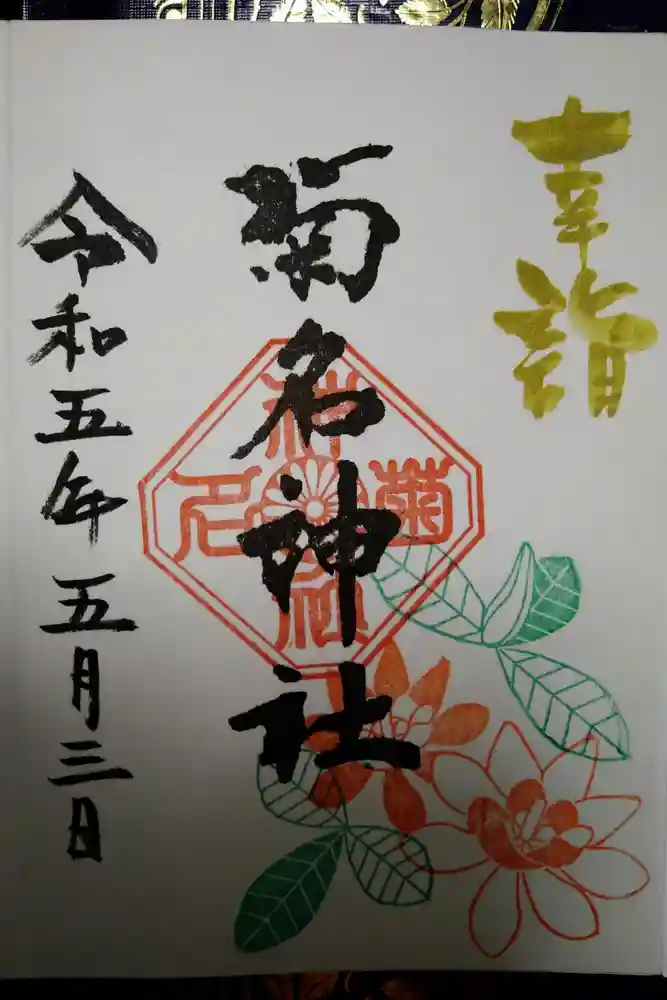 幸詣
菊名神社
菊名神社
令和五年五月三日